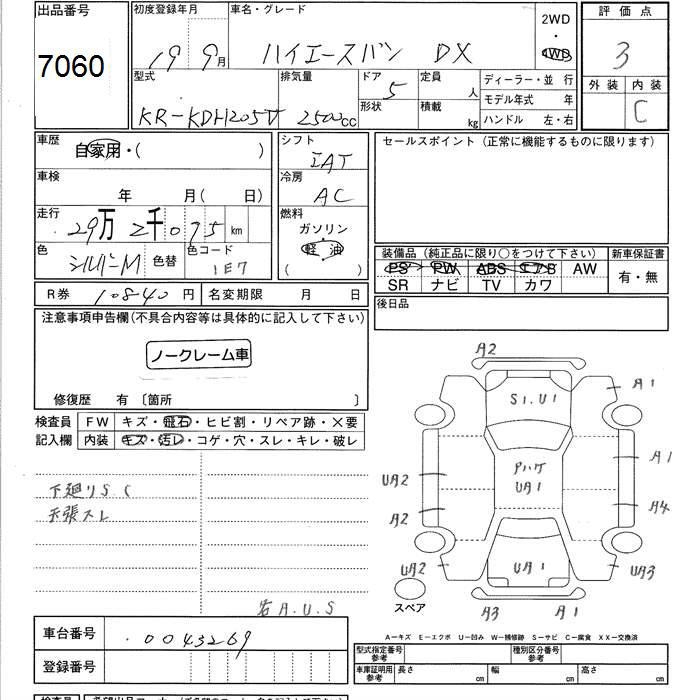 出品番号
7060
初度登録年月
19 9月
車名・グレード
ハイエースバン DX
2WD
・
4WD
評価点
3
外装 内装
C
型式
KR-KDH205V
排気量
2500cc
ドア
5
形状
定員
人
積載
kg
ディーラー・並 行
モデル年式 年
ハンドル 左・右
車歴
自家用・( )
車検
年 月( 日)
走行
29万2千075km
色
シルバーM
色替
色コード
1E7
シフト
IAT
冷房
AC
燃料
ガソリン
軽油
( )
セールスポイント(正常に機能するものに限ります)
装備品(純正品に限り○をつけて下さい)
PS PW ABS エアB AW
SR ナビ TV カワ
新車保証書
有・無
R券 10840円 名変期限 月 日
後日品
注意事項申告欄(不具合内容等は具体的に記入して下さい)
ノークレーム車
修復歴 有 〔箇所 〕
検査員
記入欄
FW キズ・飛石・ヒビ割・リペア跡・×要
内装 キズ・汚レ・コゲ・穴・スレ・キレ・破レ
下廻りS.C
天張スレ
右A.U.S
A2
S1.U1
A1
Pハゲ
UA1
A1
UA2
A2
A4
UA2
UA1
UA3
スペア
A3
A1
A-キズ E-エクボ U-凹み W-補修跡 S-サビ C-腐食 XX-交換済
車台番号
.0043269
登録番号
型式指定番号
参考
種別区分番号
参考
車庫証明用
参考
長さ cm
幅 cm
高さ cm